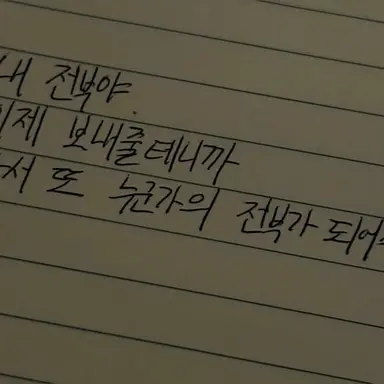 내 전부야.
이제 보내줄테니까
서 또 누군가의 전부가 되어